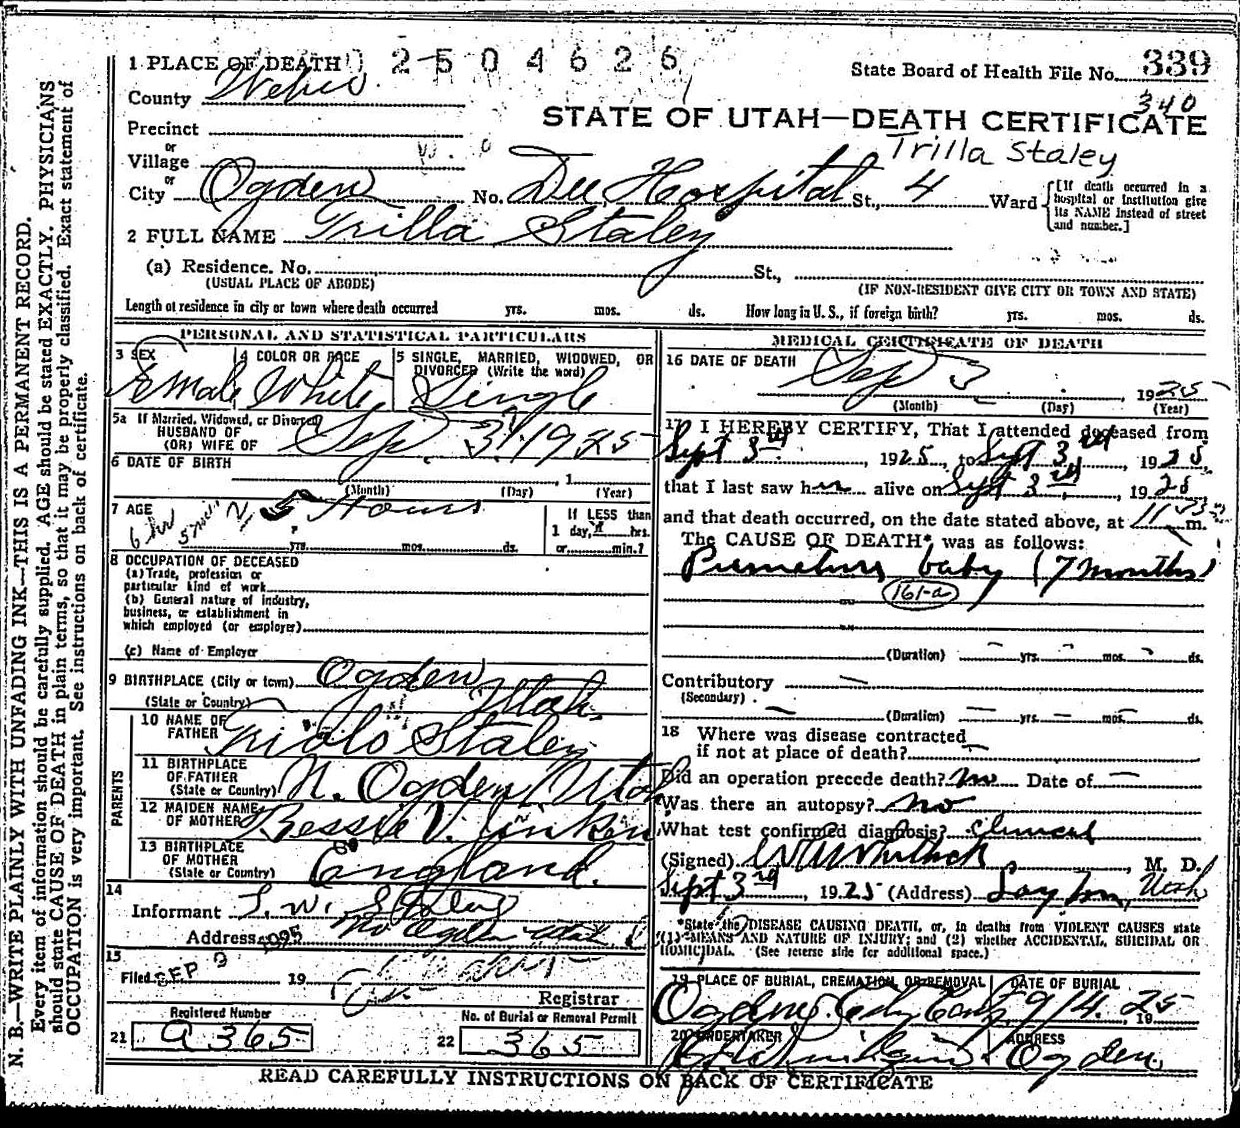 N. B.—WRITE PLAINLY WITH UNFADING INK—THIS IS A PERMANENT RECORD.
Every item of information should be carefully supplied. AGE should be stated EXACTLY. PHYSICIANS
should state CAUSE OF DEATH in plain terms, so that it may be properly classified. Exact statement of
OCCUPATION is very important. See instructions on back of certificate.
1 PLACE OF DEATH 2504626
State Board of Health File No. 339
340
County Weber
STATE OF UTAH—DEATH CERTIFICATE
Trilla Staley
Precinct
or
Village
or
City Ogden No. Dee Hospital St., 4 Ward
[If death occurred in a
hospital or institution give
its NAME instead of street
and number.]
2 FULL NAME Trilla Staley
(a) Residence. No. St.,
(USUAL PLACE OF ABODE) (IF NON-RESIDENT GIVE CITY OR TOWN AND STATE)
Length of residence in city or town where death occurred yrs. mos. ds. How long in U. S., if foreign birth? yrs. mos. ds.
PERSONAL AND STATISTICAL PARTICULARS
3 SEX 4 COLOR OR RACE 5 SINGLE, MARRIED, WIDOWED, OR
DIVORCED (Write the word)
Female White Single
5a If Married, Widowed, or Divorced
HUSBAND OF
(OR) WIFE OF
Sep. 3, 1925
6 DATE OF BIRTH , 1
(Month) (Day) (Year)
7 AGE Hours
6 hr
yrs. mos. ds.
If LESS than
1 day, hrs.
or min.?
8 OCCUPATION OF DECEASED
(a) Trade, profession or
particular kind of work
(b) General nature of industry,
business, or establishment in
which employed (or employer)
(c) Name of Employer
9 BIRTHPLACE (City or town) Ogden
(State or Country) Utah
PARENTS
10 NAME OF
FATHER Staley
11 BIRTHPLACE
OF FATHER
(State or Country) N. Ogden Utah
12 MAIDEN NAME
OF MOTHER Bessie V.
13 BIRTHPLACE
OF MOTHER
(State or Country) England.
14
Informant T. W. Staley
Address No Ogden Utah
15
Filed SEP 9 1925 19
Registrar
Registered Number No. of Burial or Removal Permit
21 a 365 22 365
MEDICAL CERTIFICATE OF DEATH
16 DATE OF DEATH
Sep 3 1925
(Month) (Day) (Year)
17 I HEREBY CERTIFY, That I attended deceased from
Sept 3rd, 1925, to Sept 3rd, 1925,
that I last saw her alive on Sept 3rd, 1925
and that death occurred, on the date stated above, at 11 m.
The CAUSE OF DEATH* was as follows:
Premature baby (7 months)
161-a
(Duration) yrs. mos. ds.
Contributory
(Secondary)
(Duration) yrs. mos. ds.
18 Where was disease contracted
if not at place of death?
Did an operation precede death? no Date of
Was there an autopsy? no
What test confirmed diagnosis? clinical
(Signed) Whitlock, M. D.
Sept 3rd 1925 (Address) Layton, Utah
*State the DISEASE CAUSING DEATH, or, in deaths from VIOLENT CAUSES state
(1) MEANS AND NATURE OF INJURY; and (2) whether ACCIDENTAL, SUICIDAL OR
HOMICIDAL. (See reverse side for additional space.)
19 PLACE OF BURIAL, CREMATION, OR REMOVAL DATE OF BURIAL
Ogden City 9/4. 1925
20 UNDERTAKER ADDRESS
Ogden
READ CAREFULLY INSTRUCTIONS ON BACK OF CERTIFICATE